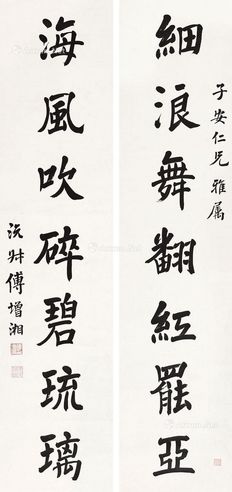 子安仁兄雅属
細浪舞翻紅罷亞
海風吹碎碧琉璃
沅叔傅增湘